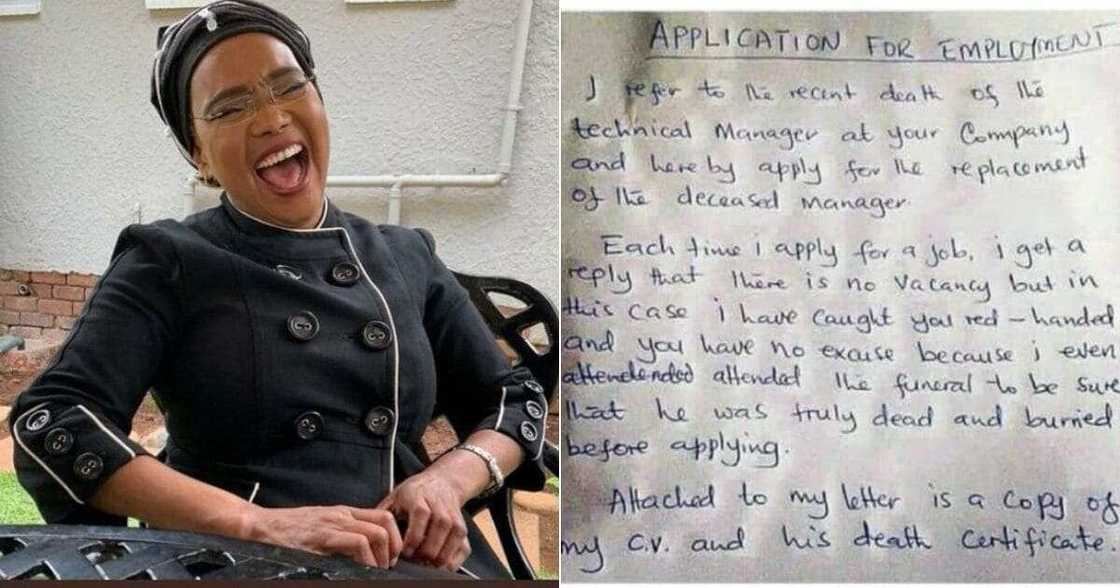 APPLICATION FOR EMPLOYMENT
I refer to the recent death of the
technical Manager at your Company
and hereby apply for the replacement
of the deceased Manager.
Each time i apply for a job, i get a
reply that there is no vacancy but in
this case i have caught you red-handed
and you have no excuse because i even
attended the funeral to be sure
that he was truly dead and burried
before applying.
Attached to my letter is a copy of
my C.V. and his death certificate.